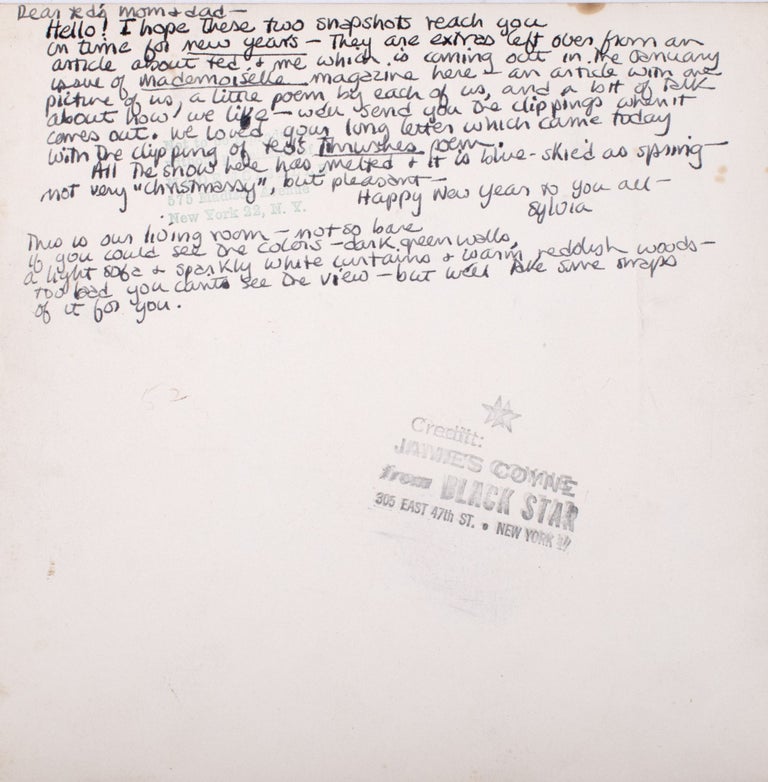 Dear Ted's mom & dad —
Hello! I hope these two snapshots reach you
in time for new years — They are extras left over from an
article about ted & me which is coming out in the January
issue of mademoiselle magazine here — an article with one
picture of us, a little poem by each of us, and a bit of talk
about how we like — we'll send you the clippings when it
comes out. We loved your long letter which came today
with the clipping of ted's Thrushes poem.
All the snow here has melted & it is blue-skied as spring —
not very "christmassy", but pleasant —
Happy New Year to you all —
Sylvia
575 Madison Avenue
New York 22, N. Y.
This is our living room — not so bare
if you could see the colors — dark green walls,
a light sofa & sparkly white curtains & warm reddish woods —
too bad you can't see the view — but we'll take some snaps
of it for you.
52
Credit:
JAMES COYNE
from BLACK STAR
305 EAST 47th ST. • NEW YORK 17